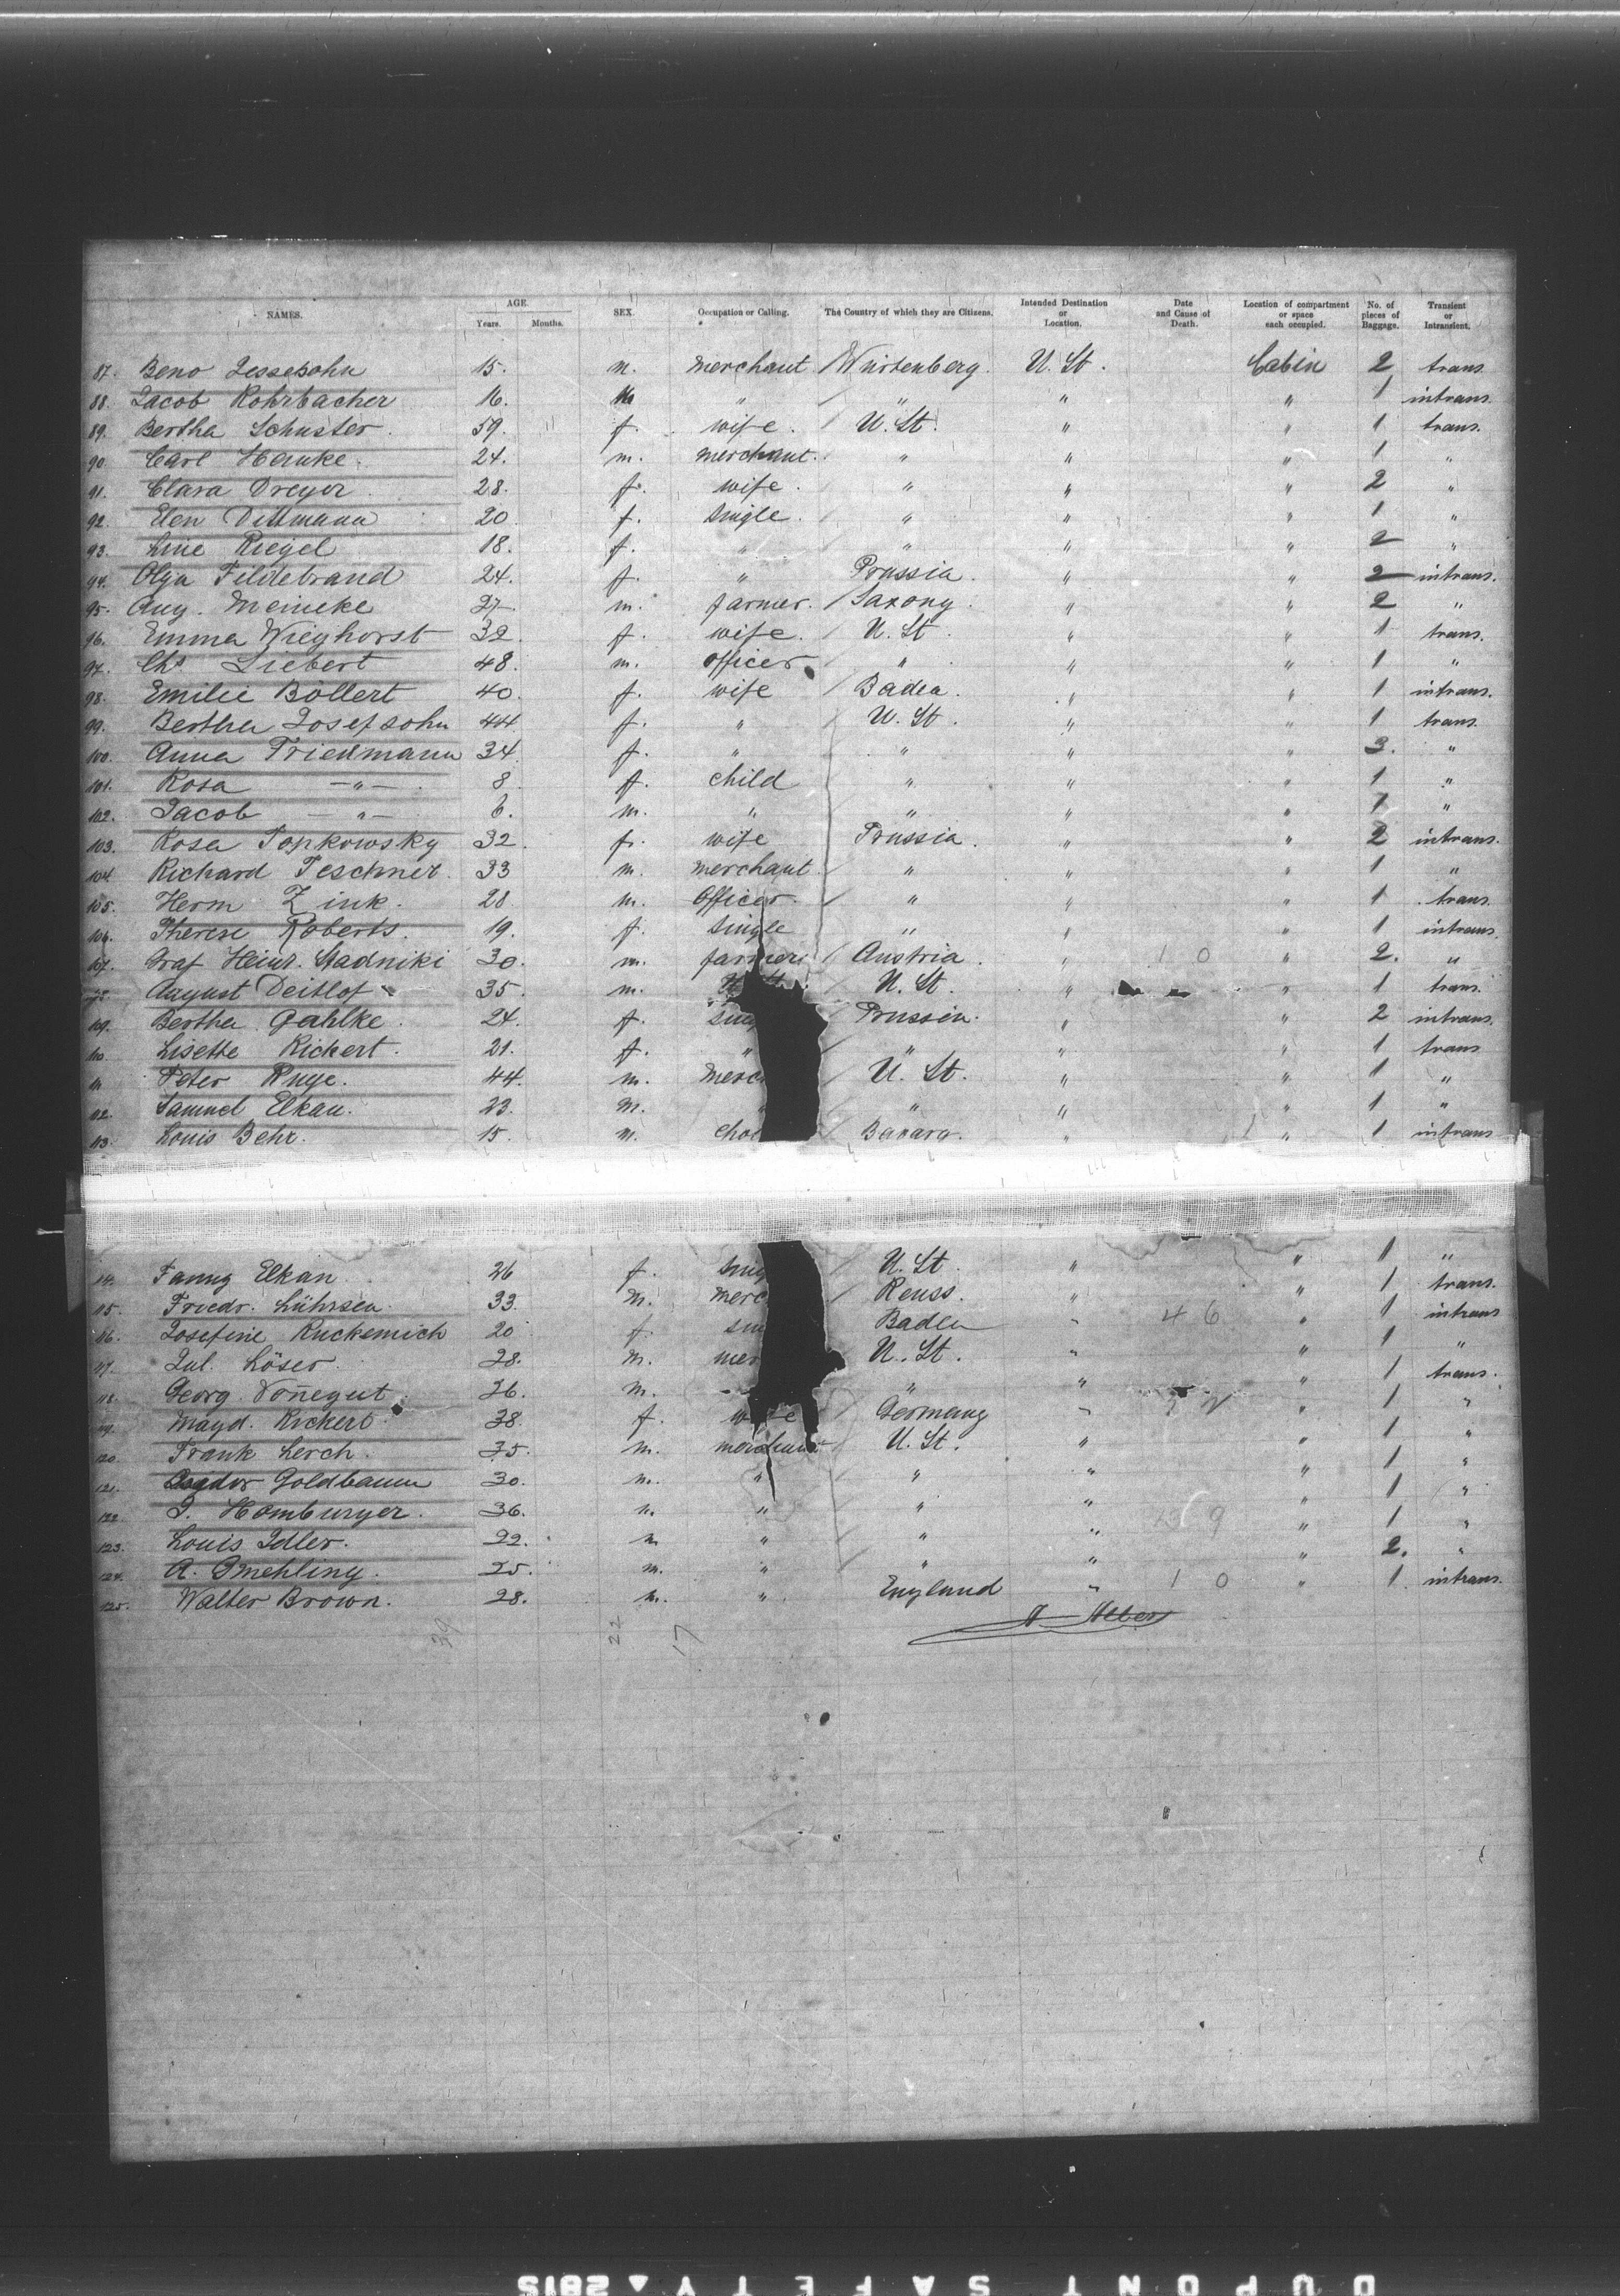 NAMES. AGE. Years. Months. SEX. Occupation or Calling. The Country of which they are Citizens. Intended Destination or Location. Date and Cause of Death. Location of compartment or space each occupied. No. of pieces of Baggage. Transient or Intransient.
87. Beno Jessesohn 15. m. merchant Würtenberg. U. St. Cabin 2 trans.
88. Jacob Rohrbacher 16. m " " " " 1 intrans.
89. Bertha Schuster. 59. f. wife. U. St. " " 1 trans.
90. Carl Hanke. 24. m. merchant. " " " 1 "
91. Clara Dreyer. 28. f. wife. " " " 2 "
92. Elen Dittmann 20 f. single. " " " 1 "
93. Line Riegel 18. f. " " " " 2 "
94. Olga Fildebrand 24. f. " Prussia. " " 2 intrans.
95. Aug. Meineke 27. m. farmer. Saxony. " " 2 "
96. Emma Wieghorst 32. f. wife. U. St. " " 1 trans.
97. Chs Liebert 48. m. officer " " " 1 "
98. Emilie Böllert 40. f. wife Baden. " " 1 intrans.
99. Bertha Josefsohn 44 f. " U. St. " " 1 trans.
100. Anna Friedmann 34 f. " " " " 3. "
101. Rosa -"- 8 f. child " " " 1 "
102. Jacob -"- 6. m. " " " " 1 "
103. Rosa Popkowsky 32. f. wife Prussia. " " 2 intrans.
104. Richard Teschner. 33 m. merchant " " " 1 "
105. Herm Zink. 28 m. Officer. " " " 1 trans.
106. Therese Roberts. 19. f. single " " " 1 intrans.
107. Graf Heinr. Stadniki 30. m. farmer Austria. " 1 0 " 2. "
August Deitlof 35. m. U. St. " " 1 trans.
109. Bertha Gahlke. 24. f. sing Prussia. " " 2 intrans.
110. Lisette Rickert. 21. f. " " " " 1 trans
111 Peter Ruge. 44. m. merc U. St. " " 1 "
112. Samuel Elkan. 23. m. " " " " 1 "
113. Louis Behr. 15. m. Bavara. " " 1 intrans
14. Fanny Elkan 26 f. sing U. St. " " 1 "
115. Friedr. Lührsen. 33. m. merc Reuss. " " 1 trans.
116. Josefine Ruckemich 20 f. sin Baden " 4 6 " 1 intrans
117. Jul. Löser. 28. m. mer U. St. " " 1 "
118. Georg. Voñegut. 36. m. " " " " 1 trans.
119. Magd. Rickert. 38. f. wife Germany " " 1 "
120 Frank Lerch. 35. m. merchant U. St. " " 1 "
121. Isidor Goldbaum 30. m. " " " " 1 "
122. J. Homburger. 36. m. " " " 9 " 1 "
123. Louis Idler. 22. m " " " " 2. "
124. A. Omehling. 25. m. " " " "
125. Walter Brown. 28. m. " England " 1 0 " 1. intrans.
39 22 17
DUPONT SAFETY 281S